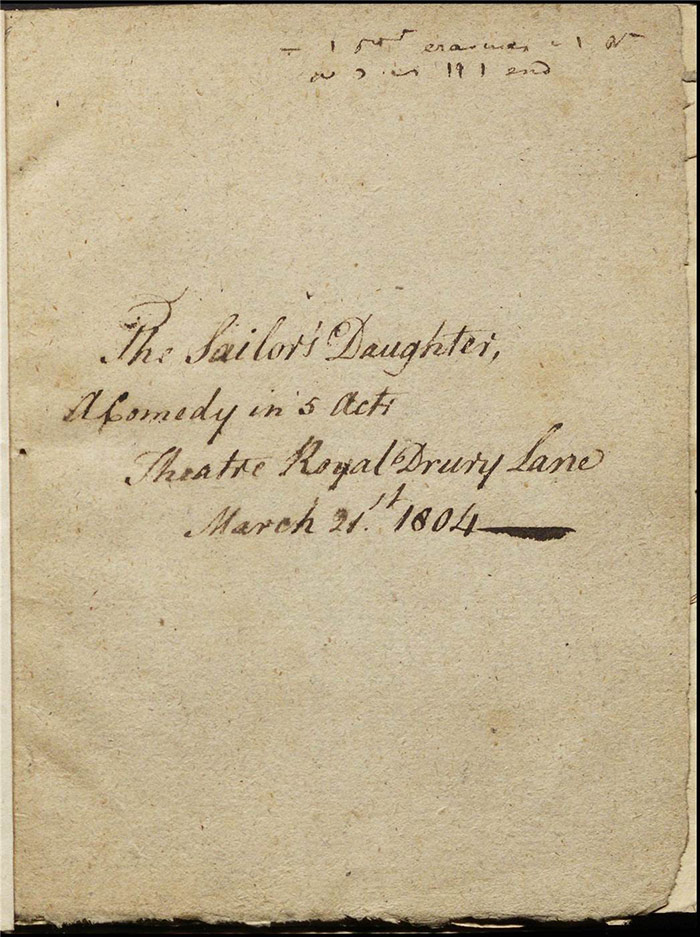 erasures
end
The Sailor's Daughter,
A Comedy in 5 Acts
Theatre Royal Drury Lane
March 21.st 1804